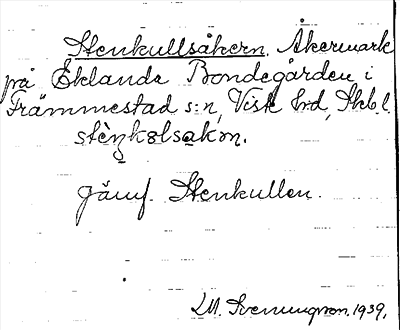 Stenkullsåkern. Åkermark
på Eklanda Bondegården i
Främmestad s:n, Viste hrd, Skb. l.
stèṇkølsakɷn.
Jämf. Stenkullen.
M. Svenungson. 1939.